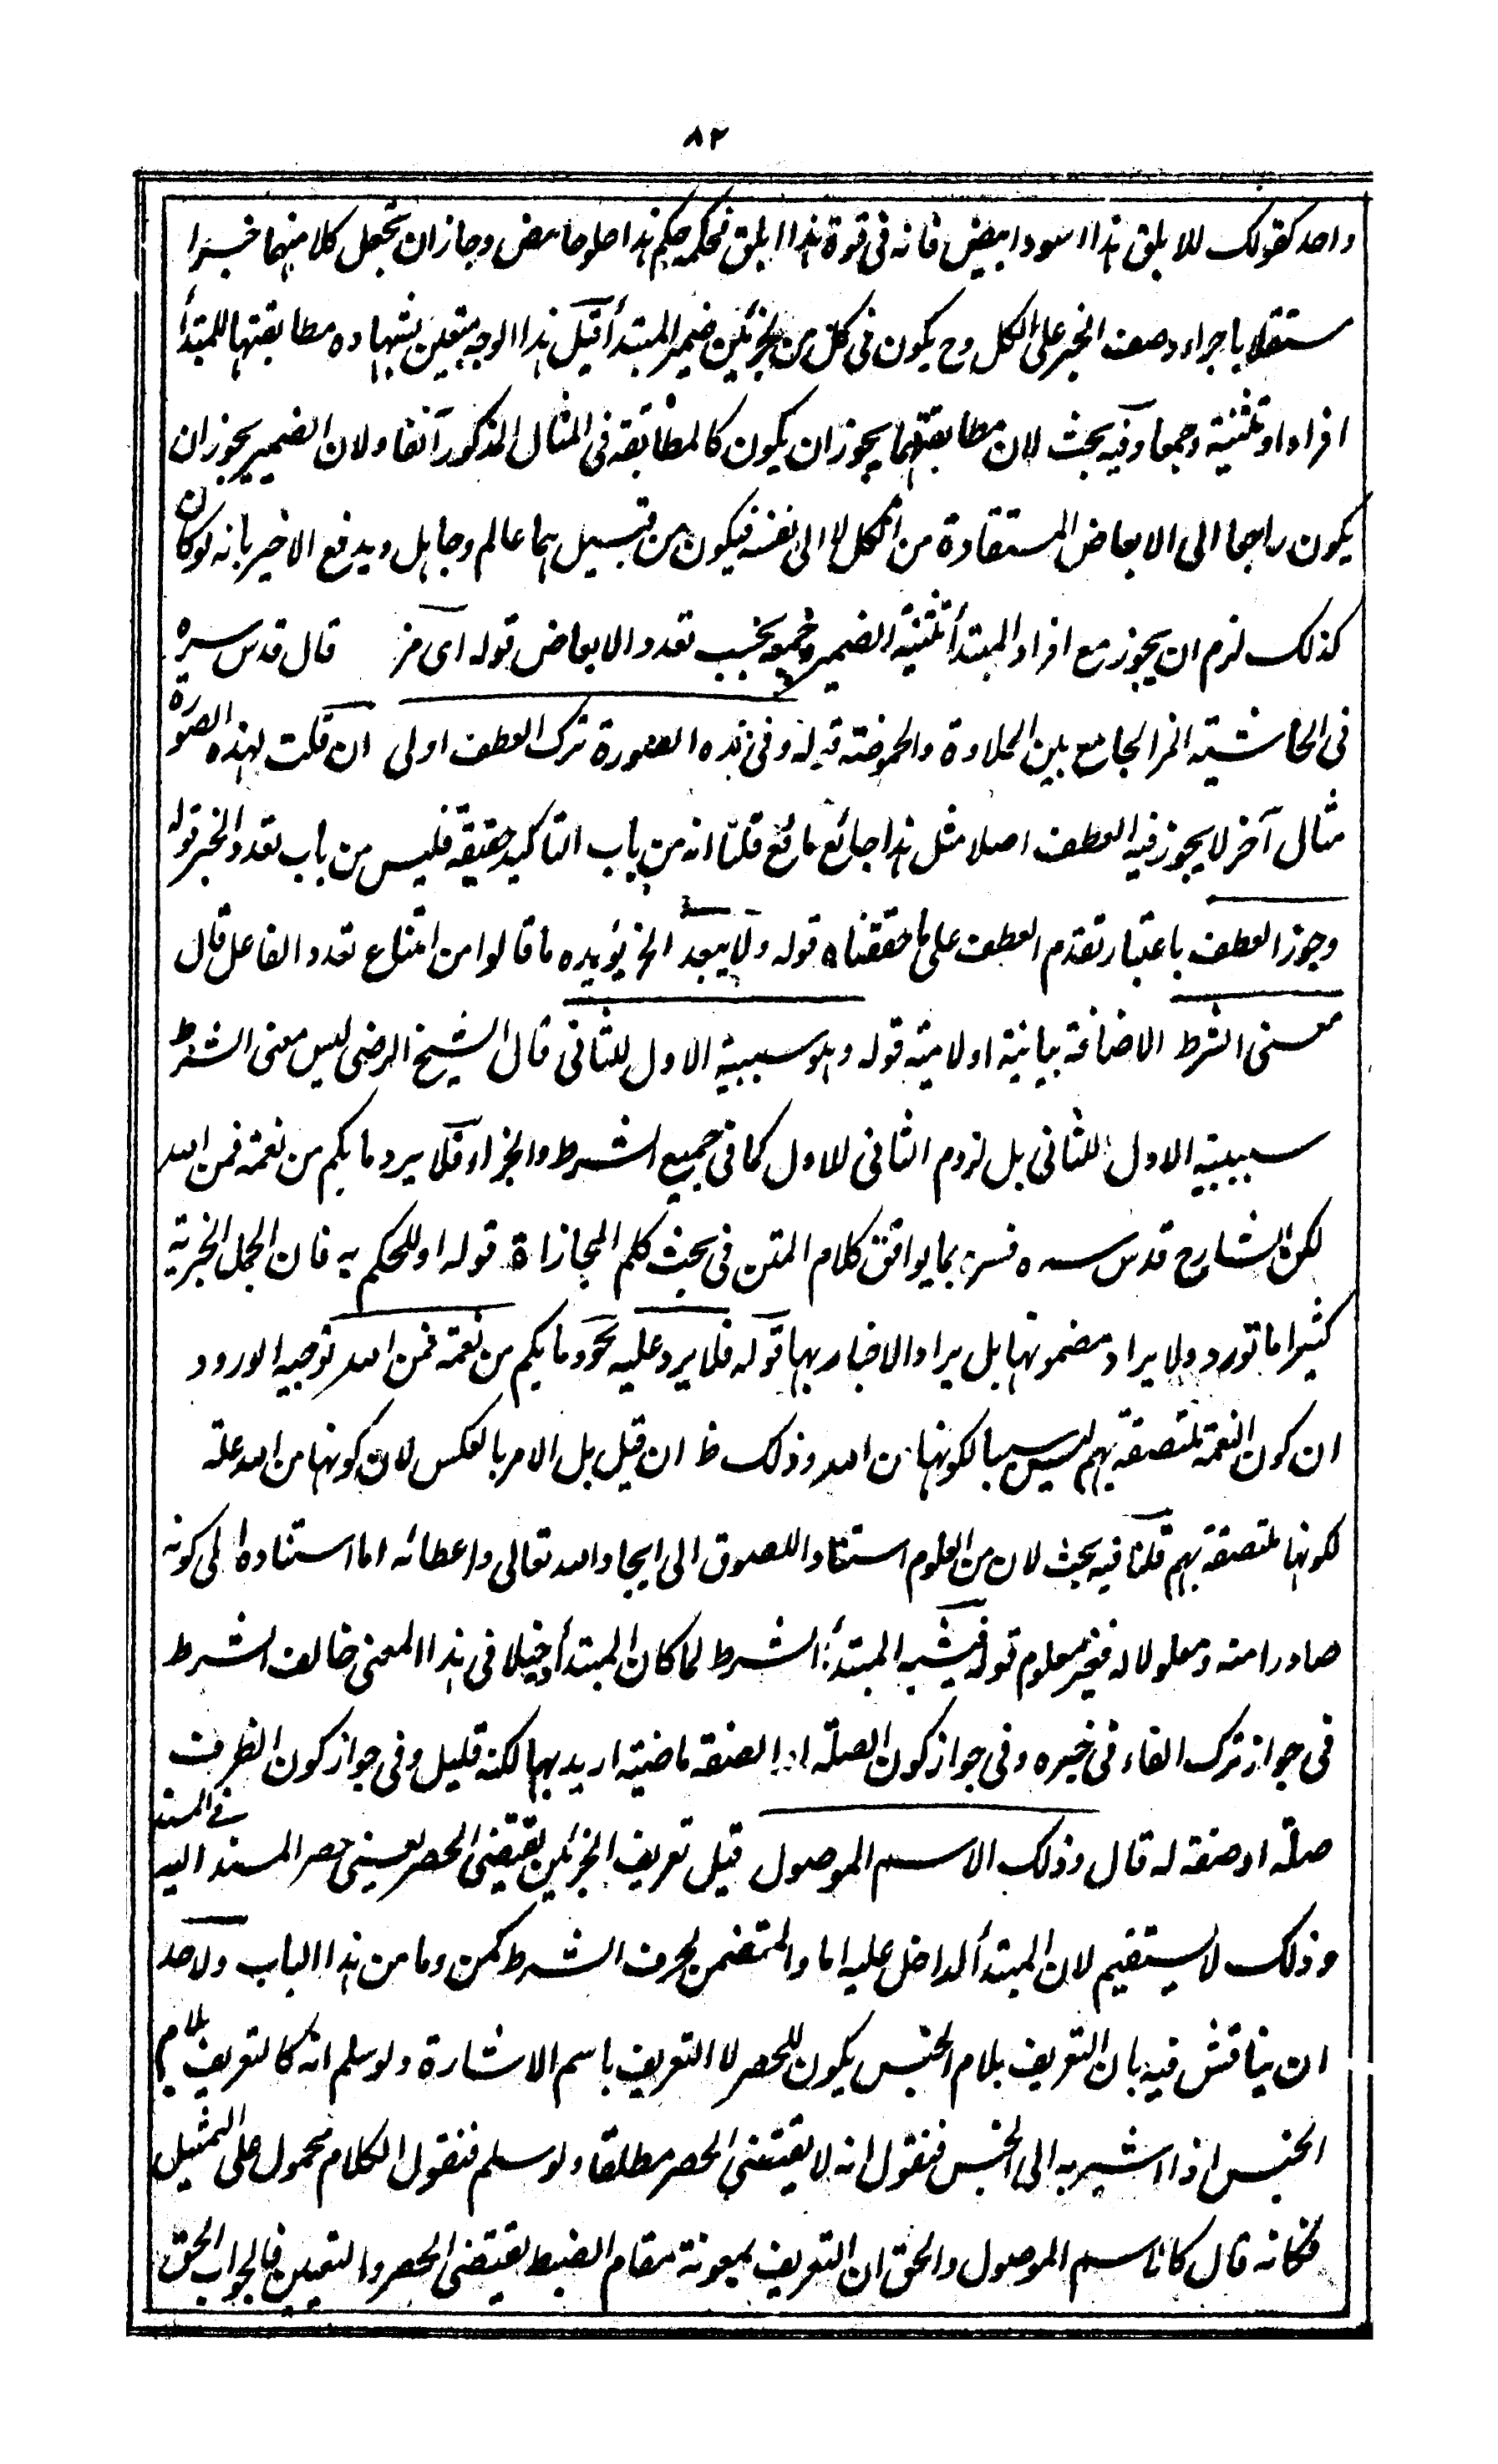 ٨٢
واحد كقولك للابلق هذا اسود ابيض فانه فى قوة هذا ابلق فحكمه حكم هذا حلو حامض وجاز ان تجعل كلا منهما خبرا
مستقلا باجراء وصف الخبر على الكل وح يكون فى كل من الجزئين ضمير المبتدأ قيل هذا الوجه متعين بشهادة مطابقتها للمبتدأ
افرادا وتثنية وجمعا وفيه بحث لان مطابقتهما يجوز ان يكون كالمطابقة فى المثال المذكور آنفا ولان الضمير يجوز ان
يكون راجعا الى الابعاض المستفادة من الكل لا الى نفسه فيكون من قبيل هما عالم وجاهل ويدفع الاخير بانه لو كان
كذلك لزم ان يجوز مع افراد المبتدأ تثنية الضمير وجمعه بحسب تعدد الابعاض قوله اى مز قال قدس سره
فى الحاشية المز الجامع بين الحلاوة والحموضة قوله وفى هذه الصورة ترك العطف اولى ان قلت لهذه الصورة
مثال آخر لا يجوز فيه العطف اصلا مثل هذا جائع نائع قلنا انه من باب التاكيد حقيقة فليس من باب تعدد الخبر قوله
وجوز العطف باعتبار تقدم العطف على ما حققناه قوله ولا يبعد الخ يؤيده ما قالوا من امتناع تعدد الفاعل قال
معنى الشرط الاضافة بيانية او لامية قوله وهو سببية الاول للثانى قال الشيخ الرضى ليس معنى الشرط
سببية الاول للثانى بل لزوم الثانى للاول كما فى جميع الشرط والجزاء فلا يرد ما بكم من نعمة فمن الله
لكن الشارح قدس سره فسره بما يوافق كلام المتن فى بحث كلم المجازاة قوله او للحكم به فان الجمل الخبرية
كثيرا ما تورد ولا يراد مضمونها بل يراد الاخبار بها قوله فلا يرد عليه نحو وما بكم من نعمة فمن الله توجيه الورود
ان كون النعمة ملتصقة بهم ليس سببا لكونها من الله وذلك ظ ان قيل بل الامر بالعكس لان كونها من الله علة
لكونها ملتصقة بهم قلنا فيه بحث لان من المعلوم استناد اللصوق الى ايجاد الله تعالى واعطائه اما استناده الى كونه
صادرا منه ومعلولا له فغير معلوم قوله فيشبه المبتدأ الشرط لما كان المبتدأ دخيلا فى هذا المعنى خالف الشرط
فى جواز ترك الفاء فى خبره وفى جواز كون الصلة او الصفة ماضية اريد بها لكنه قليل وفى جواز كون الظرف
صلة او صفة له قال وذلك الاسم الموصول قيل تعريف الجزئين يقتضى الحصر يعنى حصر المسند اليه فى المسند
وذلك لا يستقيم لان المبتدأ الداخل عليه اما والمتضمن لحرف الشرط كمن وما من هذا الباب ولاحد
ان يناقش فيه بان التعريف بلام الجنس يكون للحصر لا التعريف باسم الاشارة ولو سلم انه كالتعريف بلام
الجنس اذا اشير به الى الجنس فنقول انه لا يقتضى الحصر مطلقا ولو سلم فنقول الكلام محمول على التمثيل
فكانه قال كالاسم الموصول والحق ان التعريف بمعونة مقام الضبط يقتضى الحصر والتعيين فالجواب الحق